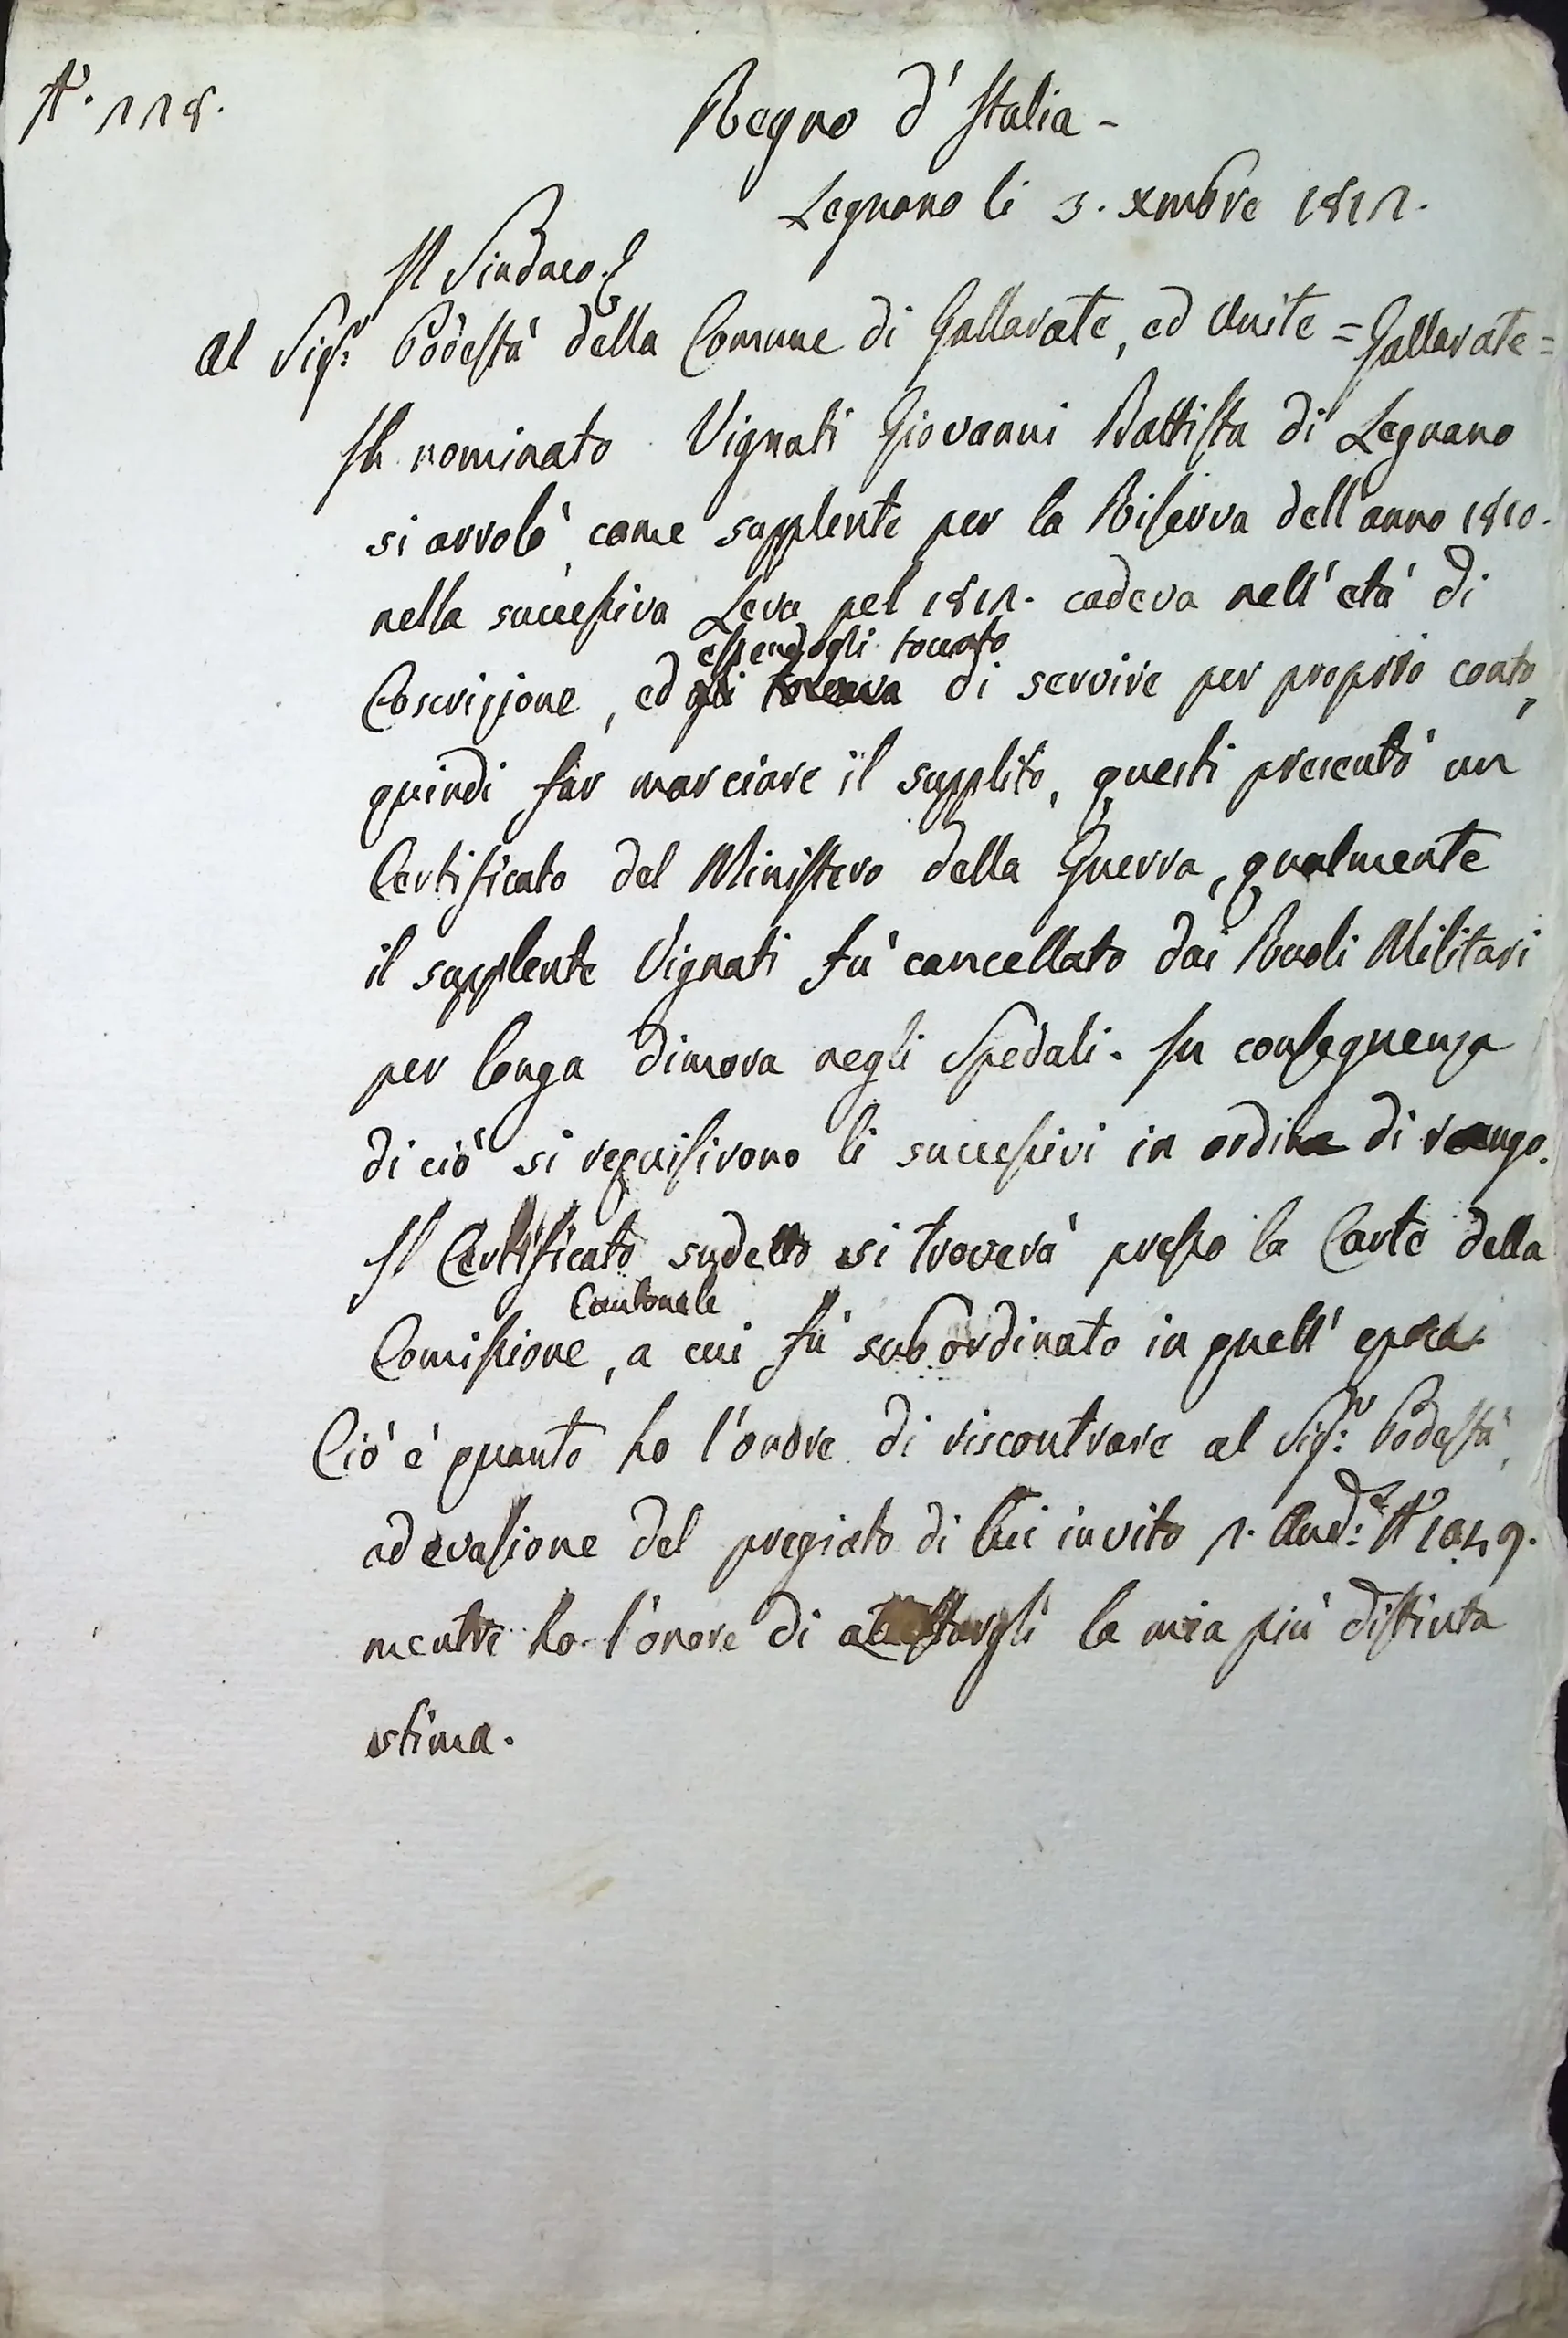 N.° 118.
Regno d'Italia -
Legnano li 3. xmbre 1811.
Il Sindaco
Al Sig.r Podestà della Comune di Gallarate, ed Unite = Gallarate =
Il nominato Vignati Giovanni Battista di Legnano
si arrolò come supplente per la Riserva dell'anno 1810.
nella successiva Leva pel 1811. cadeva nell'età di
essendogli toccato
Coscrizione, ed gli toccava di servire per proprio conto,
quindi far marciare il supplito, questi presentò un
Certificato del Ministero della Guerra, qualmente
il supplente Vignati fù cancellato dai Ruoli Militari
per longa dimora negli Spedali. In conseguenza
di ciò si requisirono li successivi in ordine di rango.
Il Certificato sudetto si troverà presso la Carte della
Cantonale
Comissione, a cui fù subordinato in quell'epoca.
Ciò è quanto ho l'onore di riscontrare al Sig.r Podestà,
ad evasione del pregiato di Lui invito 1. And.e N.°
mentre ho l'onore di attestargli la mia più distinta
stima.